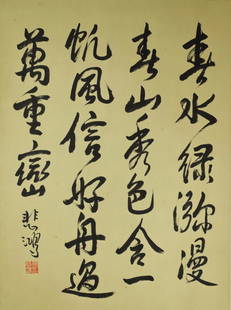 春水绿瀰漫
春山秀色含一
帆風信好舟過
萬重巒
悲鴻